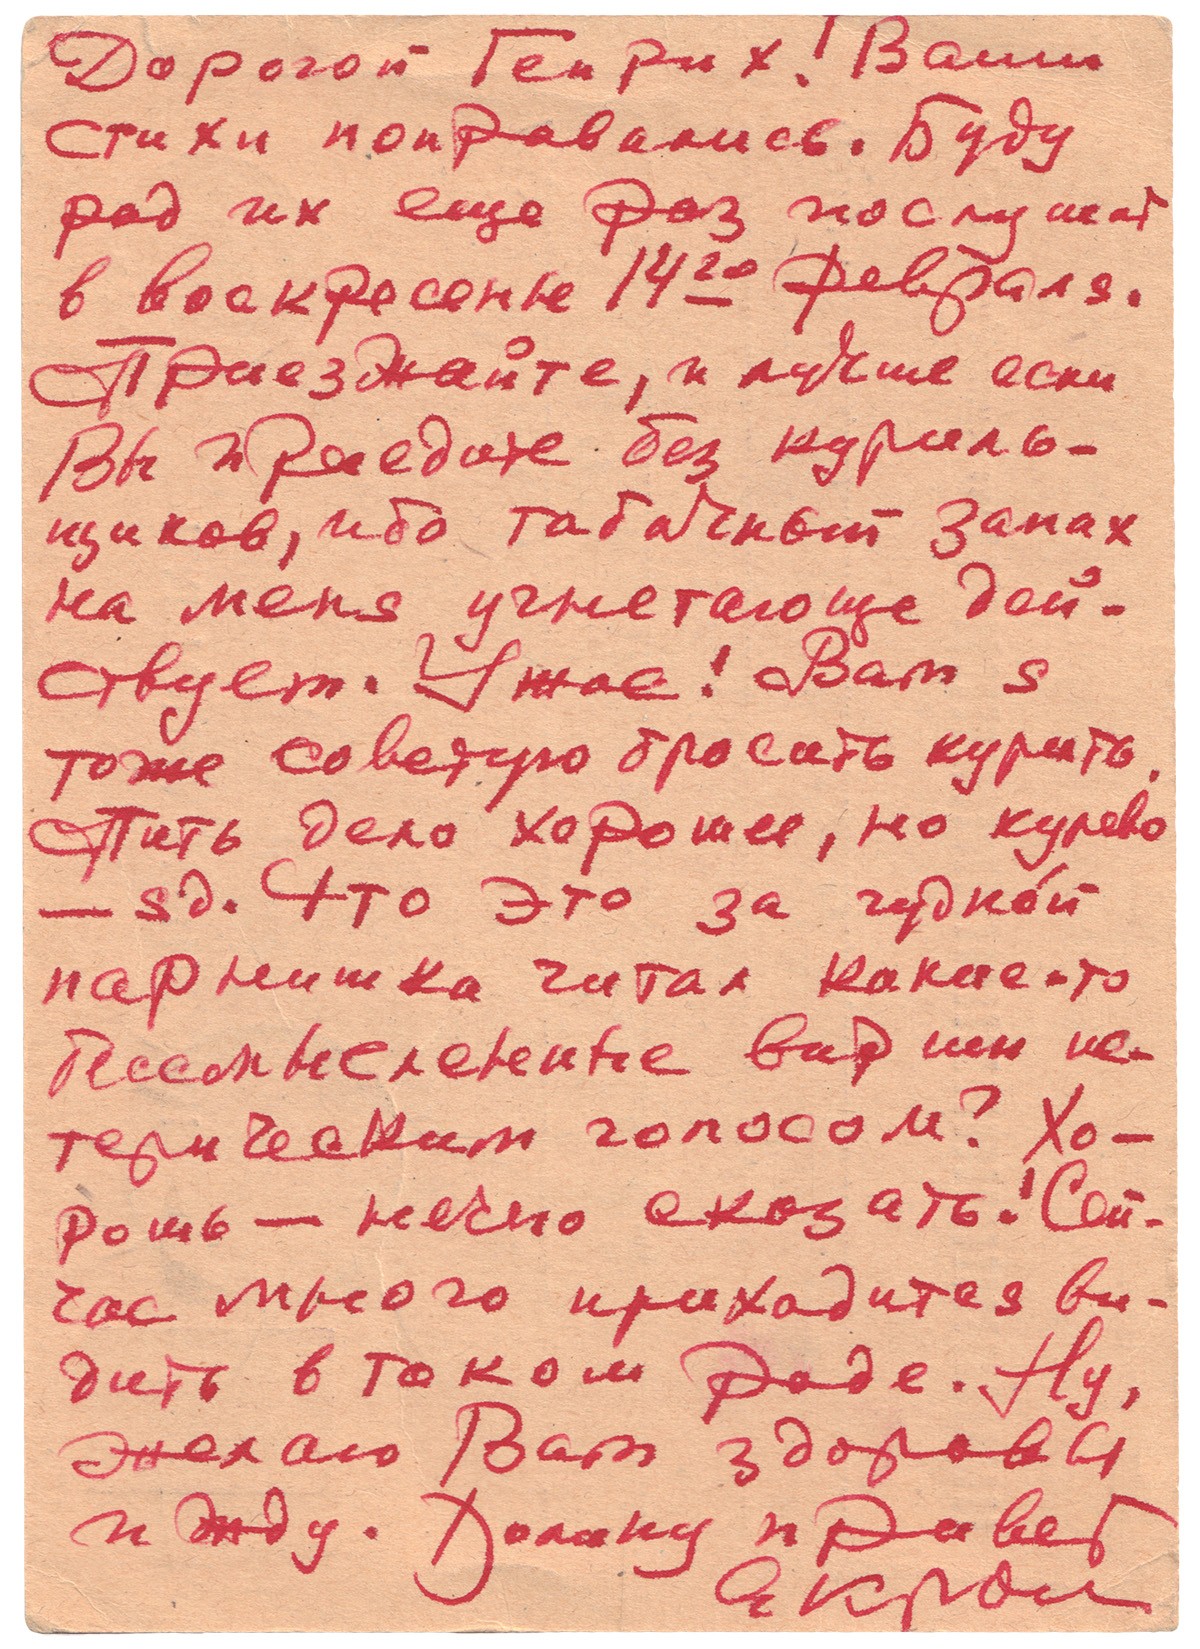 Дорогой Генрих! Ваши
стихи понравались. Буду
рад их еще раз послушат
в воскресенье 14го февраля.
Приезжайте, и лучше если
Вы приедите без куриль-
щиков, ибо табачный запах
на меня угнетающе дей-
ствует. Ужас! Вам я
тоже советую бросить курить.
Пить дело хорошее, но курево
— яд. Что это за чудной
парнишка читал какие-то
бессмысленные вирши ис-
терическим голосом? Хо-
рошь — нечего сказать! Сей-
час много приходится ви-
дить в таком роде. Ну,
желаю Вам здоровья
и жду. Холину привет